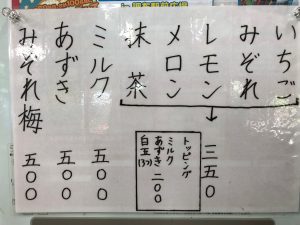 いちご
みぞれ
レモン
メロン
抹茶
三五〇
トッピング
ミルク
あずき 二〇〇
白玉(3つ)
ミルク 五〇〇
あずき 五〇〇
みぞれ梅 五〇〇